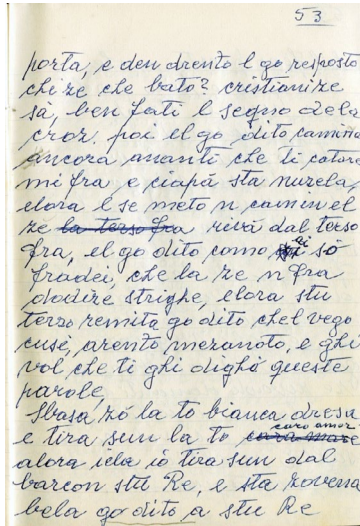 53
porta, e den drento l go resposto
chi ze che bato? cristian ize
sà, ben fati l segno dela
croz. poi el go dito camina
ancora avanti che ti catare
mi fra e ciapà sta nuzela
elora l se meto n camin el
ze la terso fra rivà dal terso
fra, el go dito como ai sò
fradei, che la ze n fra
dodize strighe, elora stu
terzo remita go dito chel vego
cusi, arento mezanoto, e ghi
vol, che ti ghi dighà queste
parole,
Sbasa zó la to bianca dresa
e tira sun la to caro amor
alora iela iò tira sun dal
barcon stu Re, e sta zovena
bela go dito a stu Re